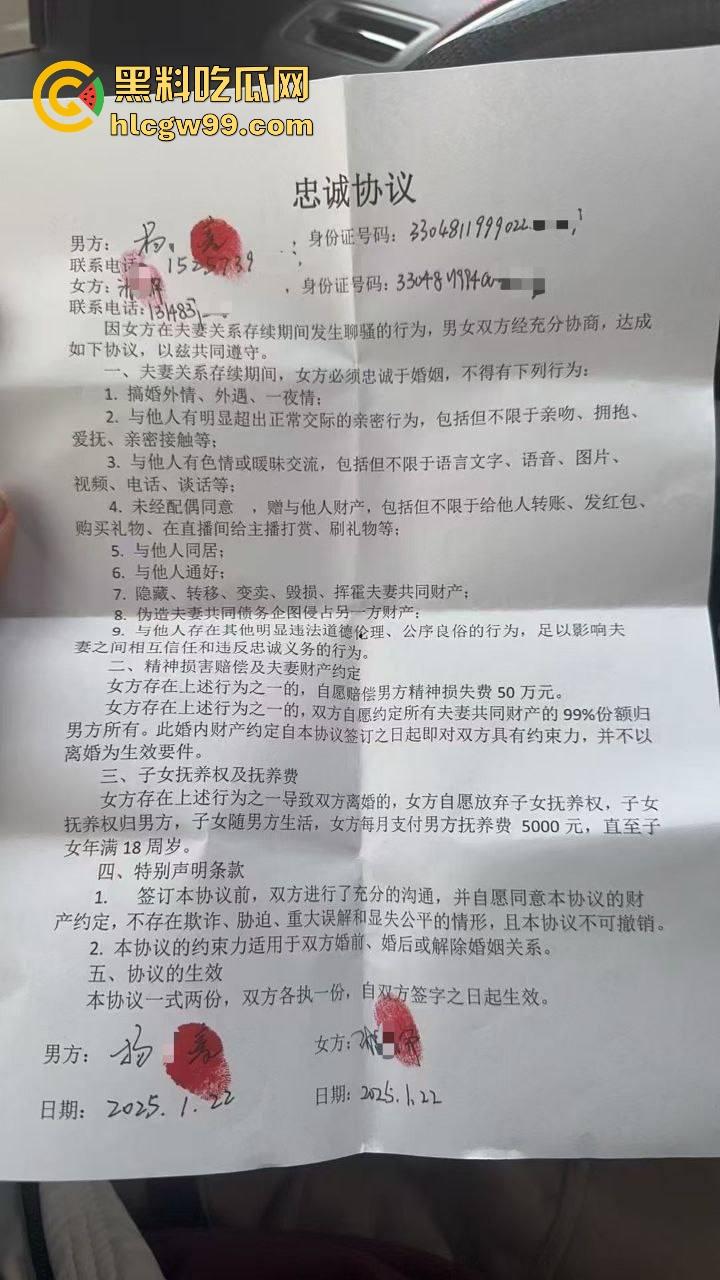 黑料吃瓜网
hlcgw99.com
忠诚协议
男方：杨 身份证号码：330481199902
联系电话
女方： 身份证号码：
联系电话:
因女方在夫妻关系存续期间发生聊骚的行为，男女双方经充分协商，达成
如下协议，以兹共同遵守。
一、夫妻关系存续期间，女方必须忠诚于婚姻，不得有下列行为：
1. 搞婚外情、外遇、一夜情；
2. 与他人有明显超出正常交际的亲密行为，包括但不限于亲吻、拥抱、
爱抚、亲密接触等；
3. 与他人有色情或暧昧交流，包括但不限于语言文字、语音、图片、
视频、电话、谈话等；
4. 未经配偶同意 ，赠与他人财产，包括但不限于给他人转账、发红包、
购买礼物、在直播间给主播打赏、刷礼物等；
5. 与他人同居；
6. 与他人通好；
7. 隐藏、转移、变卖、毁损、挥霍夫妻共同财产；
8. 伪造夫妻共同债务企图侵占另一方财产；
9. 与他人存在其他明显违法道德伦理、公序良俗的行为，足以影响夫
妻之间相互信任和违反忠诚义务的行为。
二、精神损害赔偿及夫妻财产约定
女方存在上述行为之一的，自愿赔偿男方精神损失费 50 万元。
女方存在上述行为之一的，双方自愿约定所有夫妻共同财产的 99%份额归
男方所有。此婚内财产约定自本协议签订之日起即对双方具有约束力，并不以
离婚为生效要件。
三、子女抚养权及抚养费
女方存在上述行为之一导致双方离婚的，女方自愿放弃子女抚养权，子女
抚养权归男方，子女随男方生活，女方每月支付男方抚养费 5000 元，直至子
女年满 18 周岁。
四、特别声明条款
1. 签订本协议前，双方进行了充分的沟通，并自愿同意本协议的财
产约定，不存在欺诈、胁迫、重大误解和显失公平的情形，且本协议不可撤销。
2. 本协议的约束力适用于双方婚前、婚后或解除婚姻关系。
五、协议的生效
本协议一式两份，双方各执一份，自双方签字之日起生效。
男方：杨 女方：
日期：2025.1.22 日期：2025.1.22